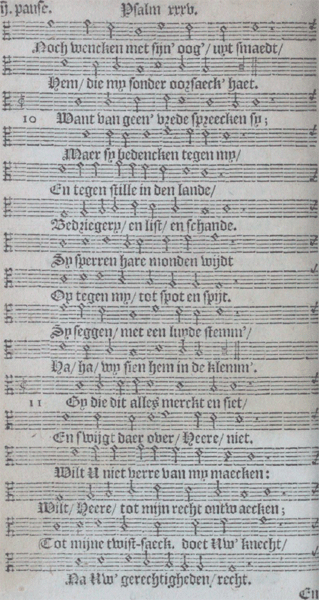 ij. pause. Psalm xxxv.
Noch wencken met sijn' oog'/ uyt smaedt/
Hem/ die my sonder oorsaeck' haet.
10 Want van geen' vrede spreecken sy;
Maer sy bedencken tegen my/
En tegen stille in den lande/
Bedriegery/ en list/ en schande.
Sy sperren hare monden wijdt
Op tegen my/ tot spot en spijt.
Sy seggen/ met een luyde stemm'/
Ha/ ha/ wy sien hem in de klemm'.
11 Gy die dit alles merckt en siet/
En swijgt daer over/ Heere/ niet.
Wilt U niet verre van my maecken:
Wilt/ Heere/ tot mijn recht ontwaecken;
Tot mijne twist-saeck. doet Uw' knecht/
Na Uw' gerechtigheden/ recht.
En